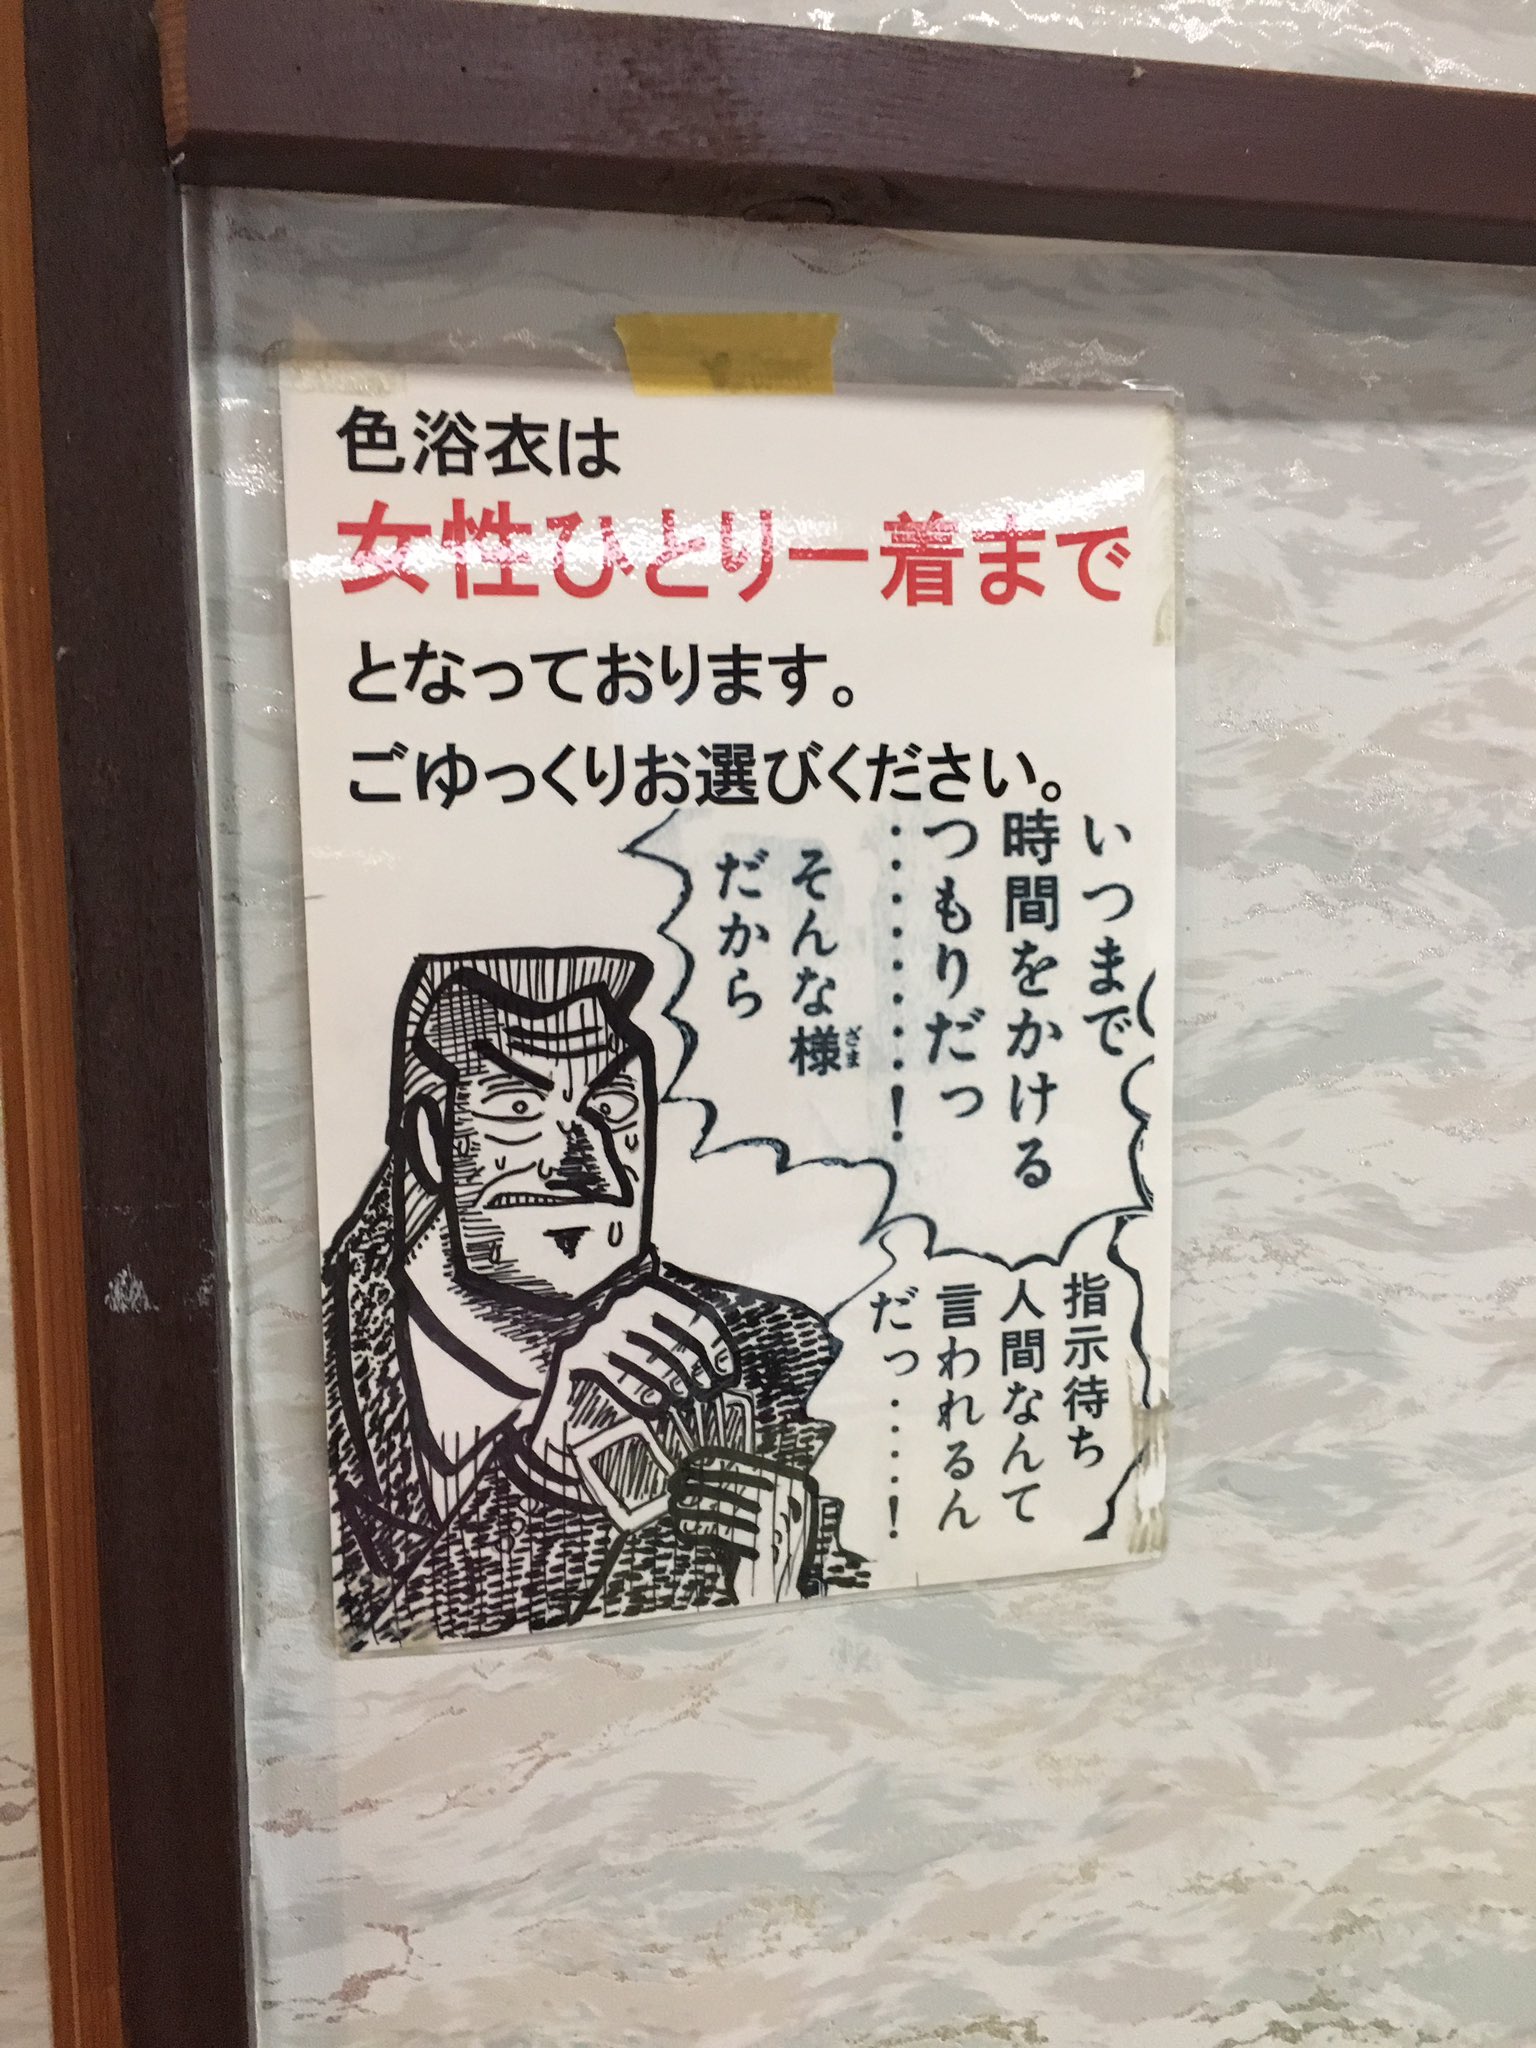 色浴衣は
女性ひとり一着まで
となっております。
ごゆっくりお選びください。
いつまで
時間をかける
つもりだっ
………!
そんな様
ざま
だから
指示待ち
人間なんて
言われるん
だっ……!